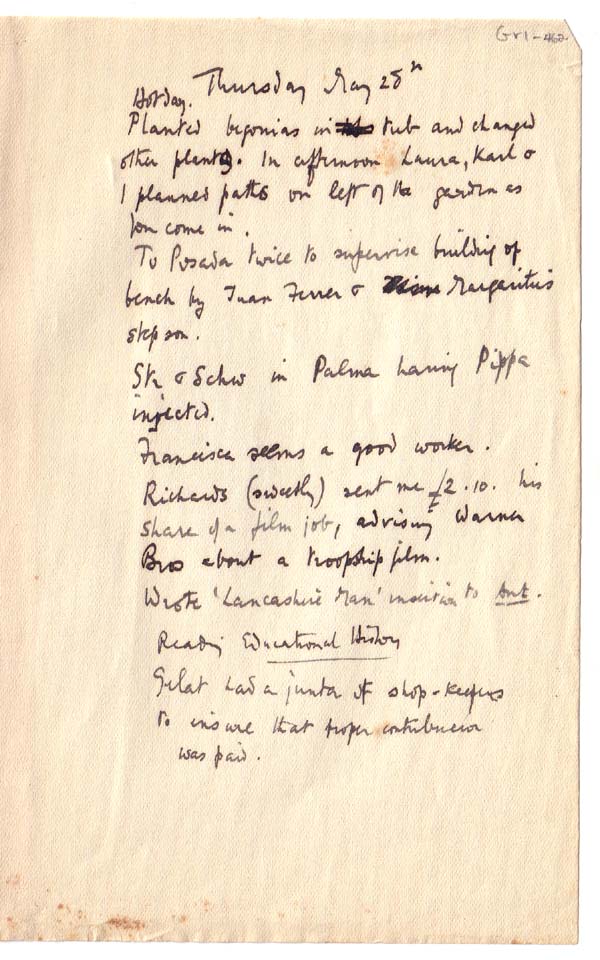 Gr1-462
Thursday May 28th
Hot day.
Planted begonias in tub and changed
other plants. In afternoon Laura, Karl &
I planned paths on left of the garden as
you come in.
To Posada twice to supervise building of
bench by Juan Ferrer & Margarita's
step son.
Str & Schw in Palma having Pippa
injected.
Francisca seems a good worker.
Richards (sweetly) sent me £2.10. his
share of a film job, advising Warner
Bros about a troopship film.
Wrote 'Lancashire Man' insertion to Ant.
Reading Educational History
Gelat had a junta of shop-keepers
to insure that proper contribucion
was paid.